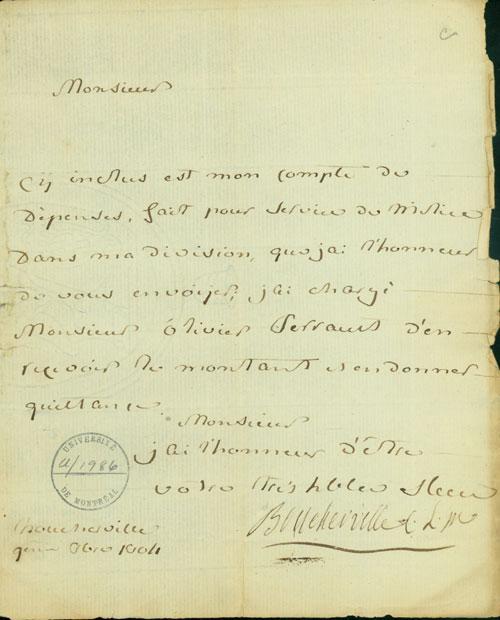 Monsieur
Cij inclus est mon compte de
Dépenses, fait pour service de Milice
Dans ma division, que jai l'honneur
de vous envoyer, jai chargé
Monsieur Olivier Perrault d'en
recevoir le montant et en donner
quittance.
Monsieur
jai l'honneur d'être
votre très hble
UNIVERSITÉ
U/1986
DE MONTRÉAL
Boucherville
Boucherville
8bre 1804